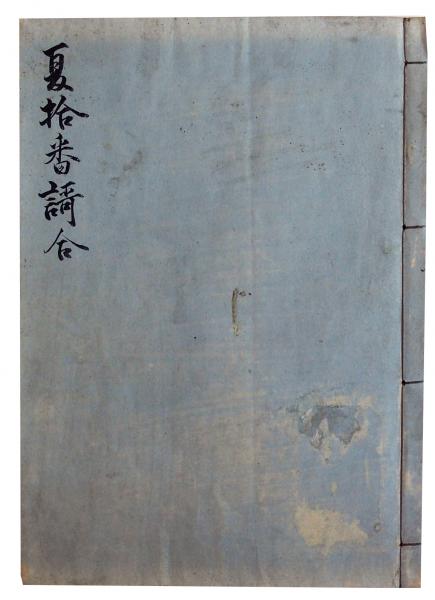 夏拾番謌合